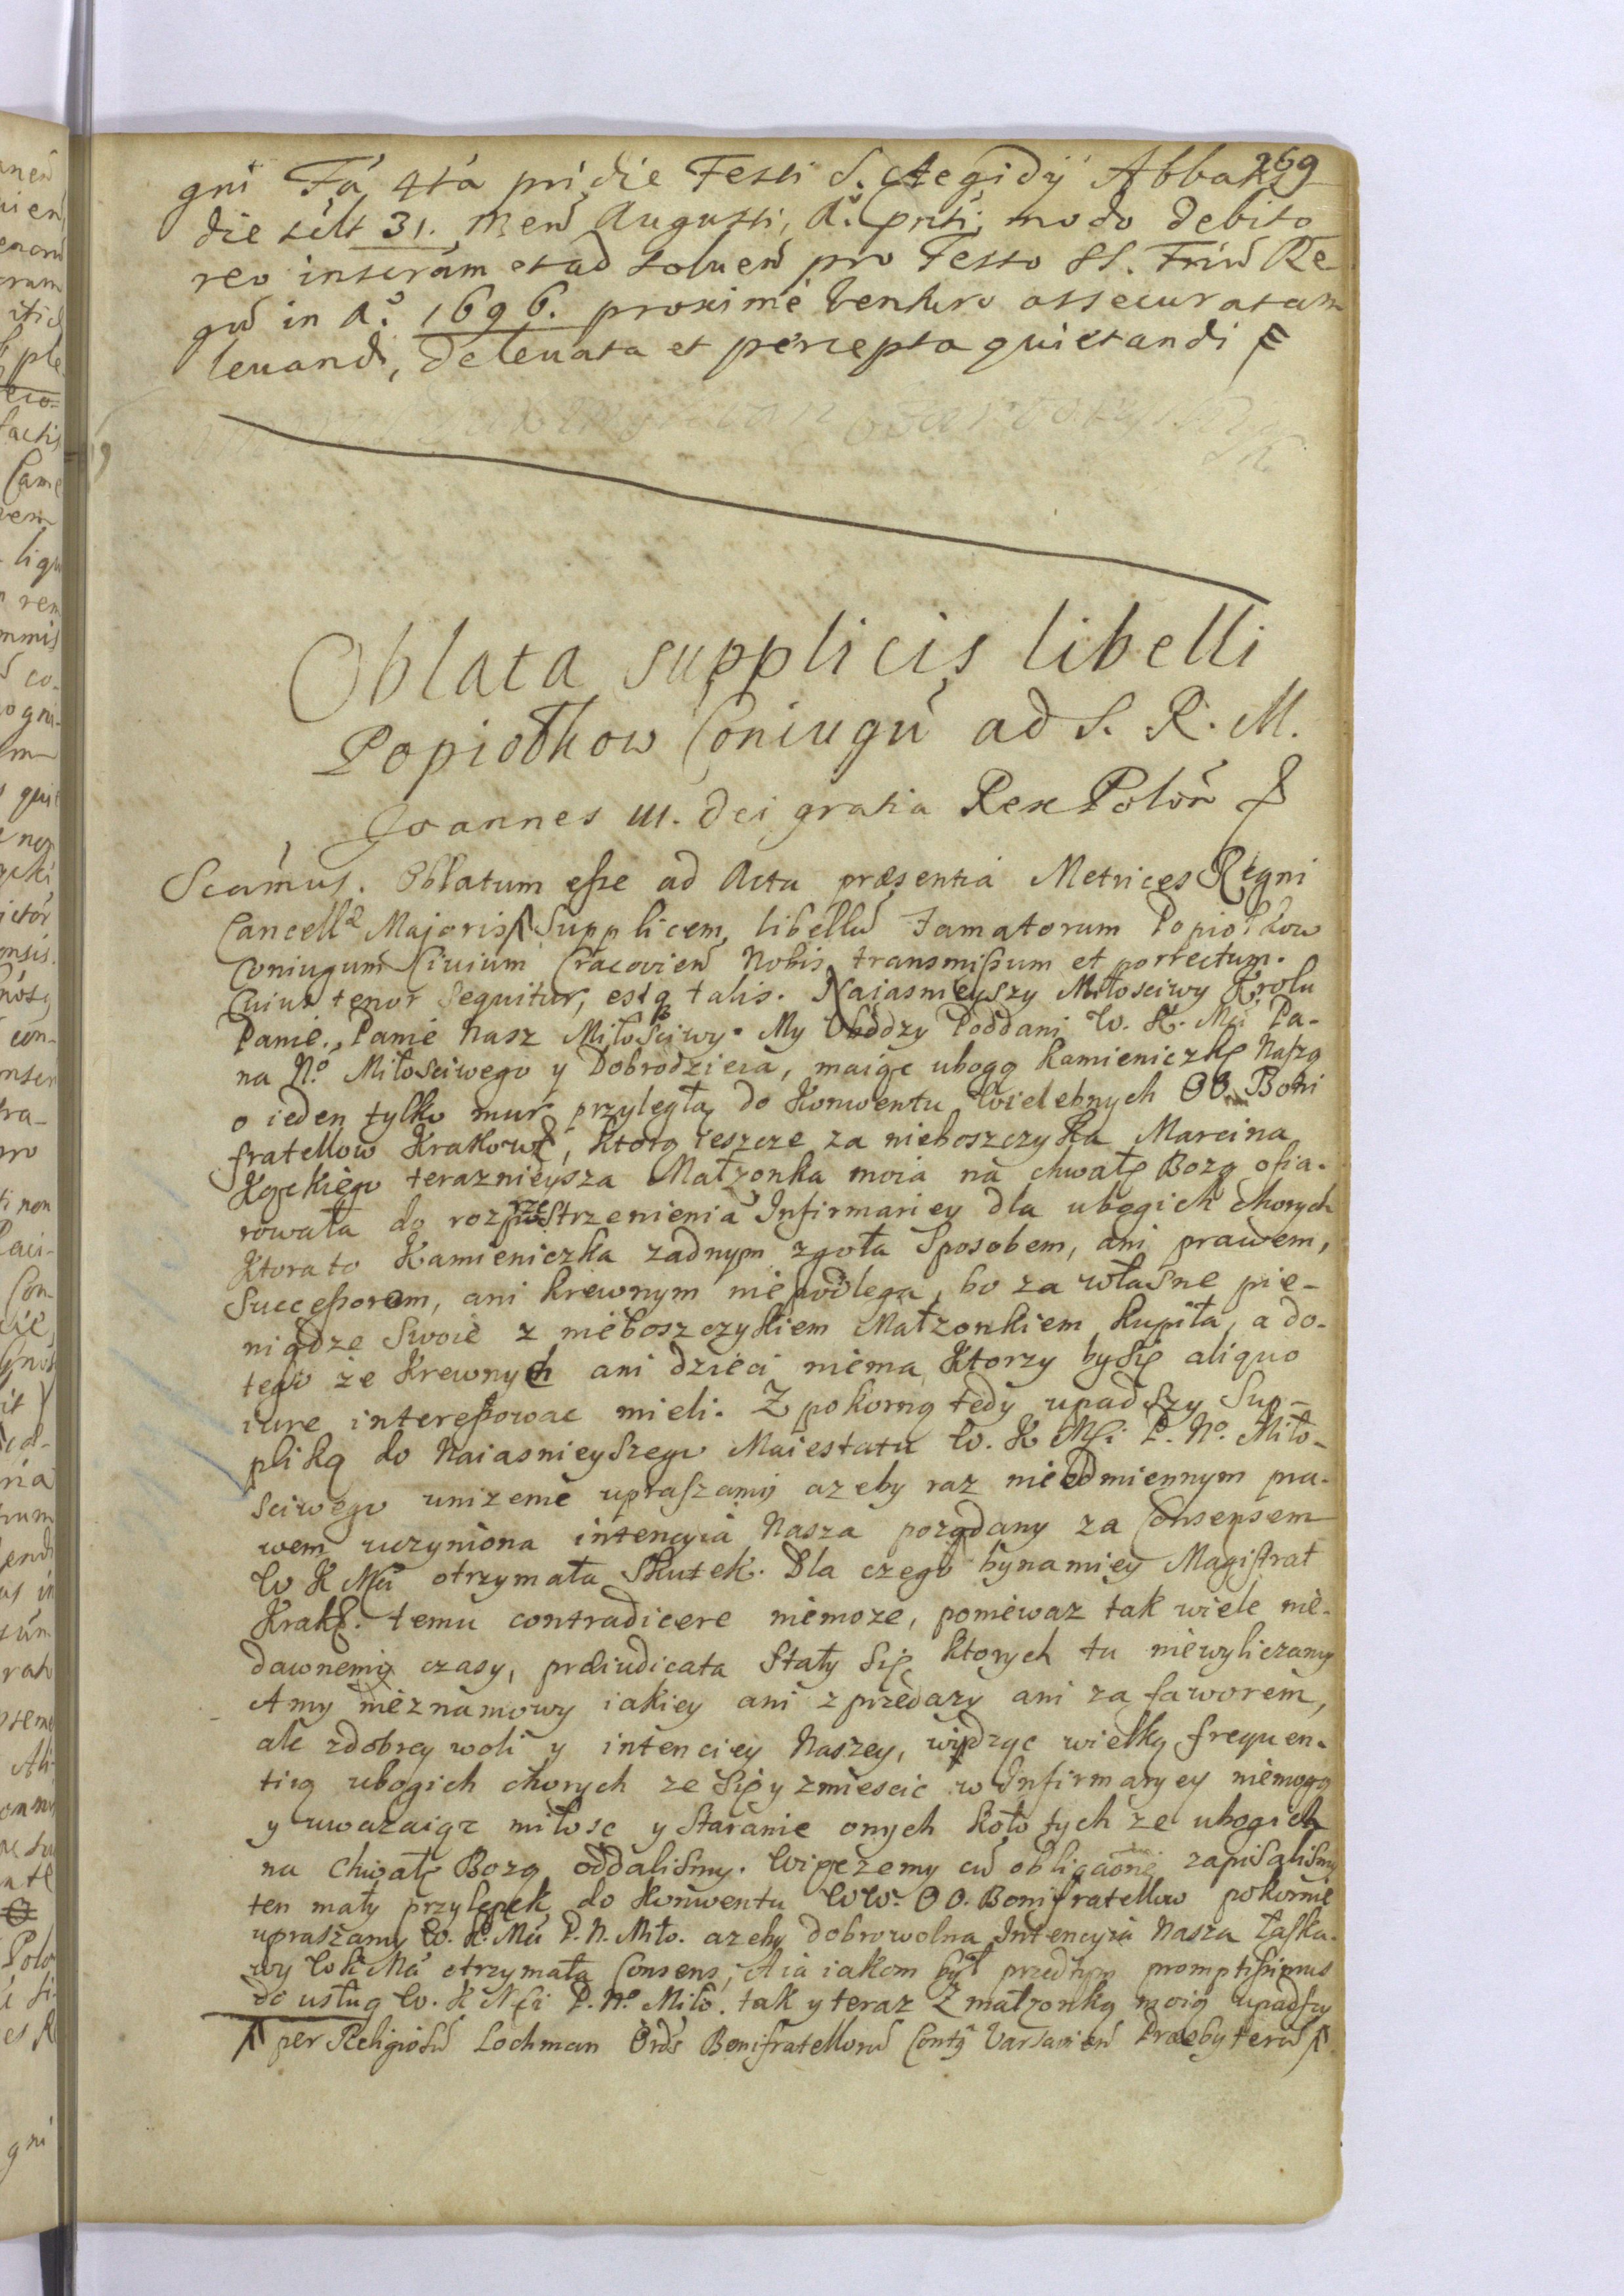 269
gni Fa 4ta pridie Festi S. Aegidÿ Abbatis
die scilt 31. Men Augusti, A.º prti, modo debito
reo inseram et ad soluen pro Festo SS. Triu Re
gu in A.º 1696. proxime venturo assecuratam
leuandi, deleuata et percepta quietandi
Oblata supplicis libelli
Popiołkow Coniugu ad S. R. M.
Joannes III. Dei gratia Rex Polon
Scamus. Oblatum esse ad Acta præsentia Metrices Regni
Cancellæ Majoris Supplicem libellu Famatorum Popiołkow
Coniugum Ciuium Cracovien Nobis transmissum et porrectum.
Cuius tenor sequitur, estq talis. Naiasnieyszy Miłosciwy Krolu
Panie, Panie Nasz Miłosciwy. My Vbodzy Poddani W. K. Mci Pa-
na N.º Miłosciwego y Dobrodzieia, maiąc ubogą kamieniczkę Naszą
o ieden tylko mur przyległą do Konwentu Wielebnych OO. Boni
fratellow Krakows, ktorą ieszcze za nieboszczyka Marcina
Kąckiego teraznieysza Małzonka moia na chwałę Bozą ofia-
rowała do rozprzestrzenienia Infirmariey dla ubogich chorych
Ktora to Kamieniczka zadnym zgoła Sposobem, ani prawem,
Successorom, ani krewnym niepodlega, bo za własne pie-
niądze Swoie z nieboszczykiem Małzonkiem kupiła, a do-
tego ze Krewnych ani dzieci niema Ktorzy by się aliquo
iure interessowac mieli. Z pokorną tedy upadszy Sup-
pliką do Naiasnieyszego Maiestatu W. K Msci P. N.º Miło-
sciwego unizenie upraszamy azeby raz nieodmiennym pra-
wem uczyniona intencyia Nasza porządany za Consensem
W K Mci otrzymała Skutek. Dla czego bynamiey Magistrat
Kraks. temu contradicere niemoze, poniewaz tak wiele nie-
dawnemi czasy, præiudicata Stały Się ktorych tu niewyliczamy
A my nieznamowy iakiey ani z przedazy ani za faworem,
ale zdobrey woli y intenciey Naszey, widząc wielką frequen-
tią ubogich chorych ze Się y zmiescic w Infirmaryey niemogą
y uwazaiąc miłosc y Staranie onych koło tych ze ubogich
na chwałę Bozą oddalismy. Więcżemy cu obligaone zapisalismy
ten mały przylepek do Konwentu WW. OO. Bonifratellow pokornie
upraszamy W. K. Mci P. N. Miło. azeby dobrowolna Intencyia Nasza łaska-
wy W K Mci otrzymała Consens, A ia iakom był przedtym promptissimus
do usług W. K Msci P. N.º Miło. tak y teraz Z małzonką moią upadszy
per Religiosu Lochman Ords Bonifratelloru Contq Varsavien Præsbyteru